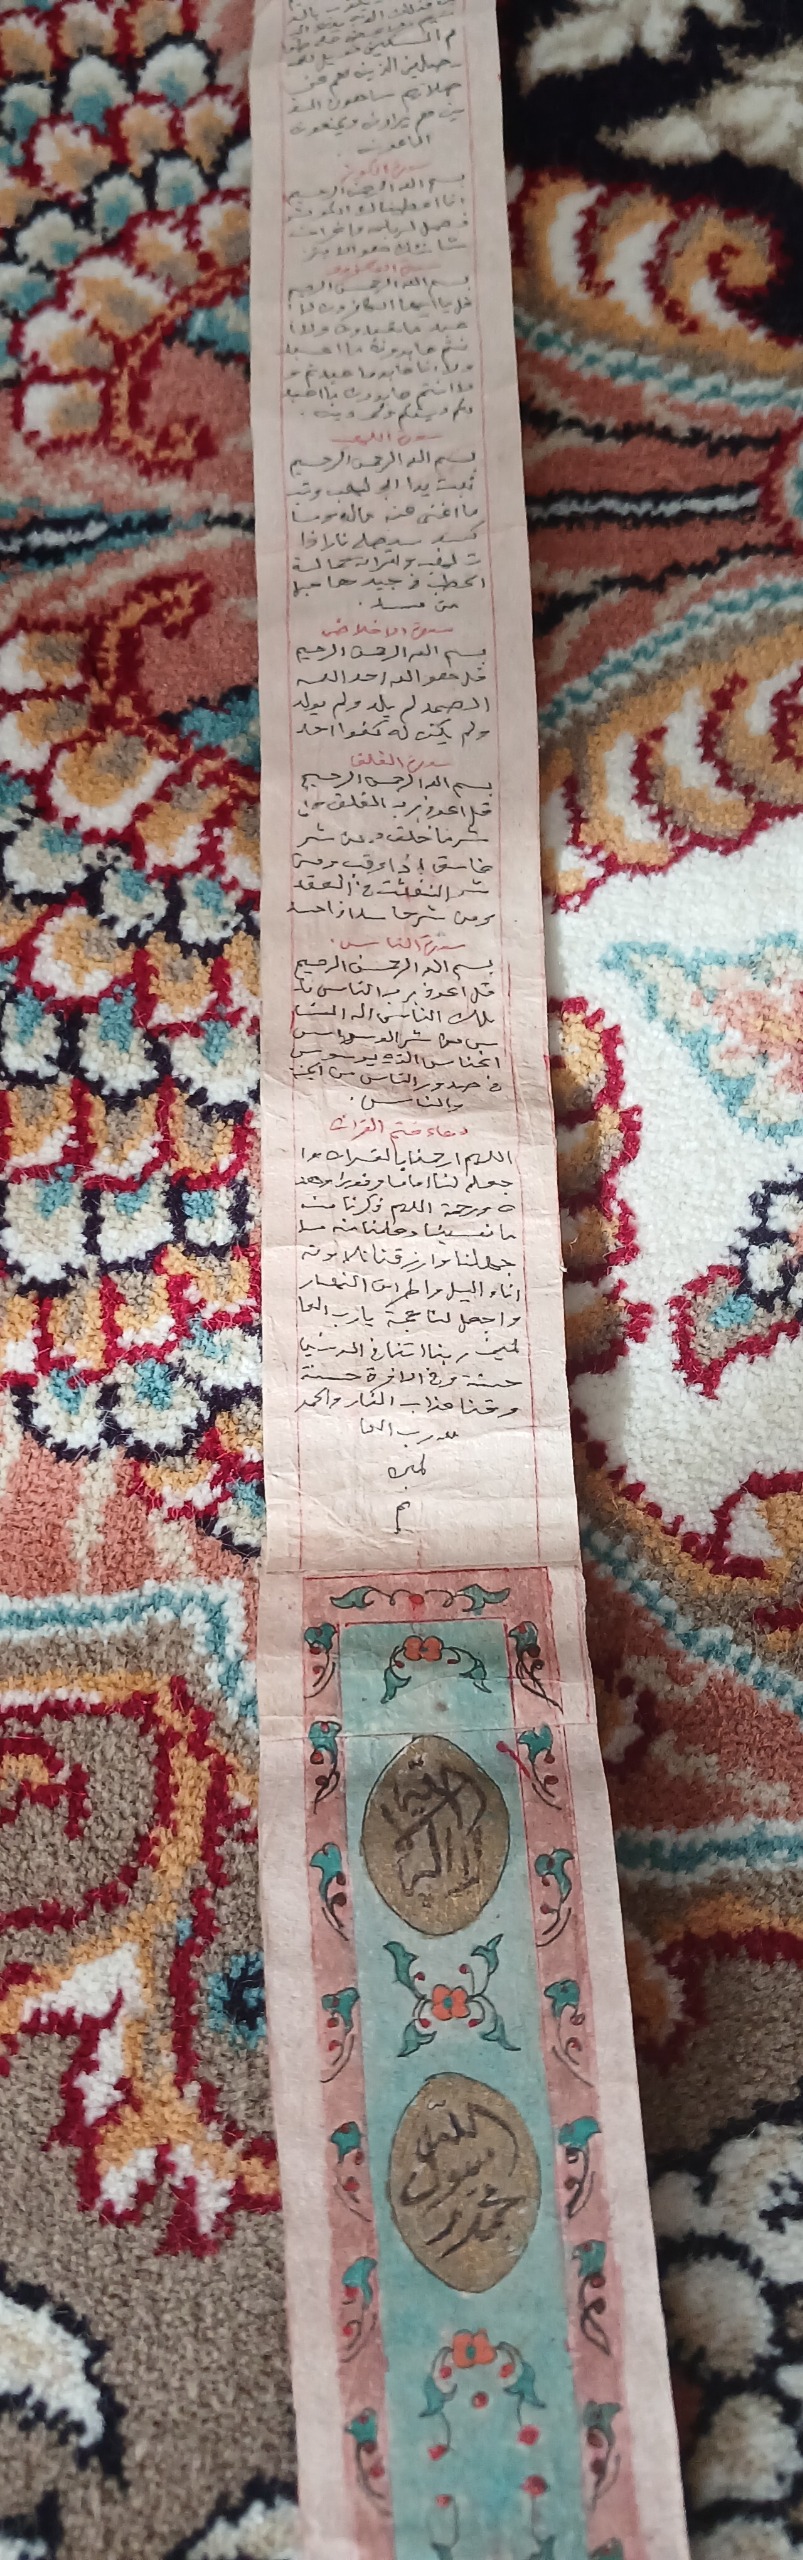 م المسكين فويل للم
صلين الذين هم عن
صلاتهم ساهون الذ
ين هم يراون ويمنعون
الماعون
سورة الكوثر
بسم الله الرحمن الرحيم
انا اعطيناك الكوثر
فصل لربك وانحر ان
شانئك هو الابتر
سورة الكافرون
بسم الله الرحمن الرحيم
قل يا ايها الكافرون لا ا
عبد ما تعبدون ولا ا
نتم عابدون ما اعبد
ولا انا عابد ما عبدتم و
لا انتم عابدون ما اعبد
لكم دينكم ولي دين
سورة اللهب
بسم الله الرحمن الرحيم
تبت يدا ابي لهب وتب
ما اغنى عنه ماله وما
كسب سيصلى نارا ذا
ت لهب وامراته حمالة
الحطب في جيدها حبل
من مسد
سورة الاخلاص
بسم الله الرحمن الرحيم
قل هو الله احد الله
الصمد لم يلد ولم يولد
ولم يكن له كفوا احد
سورة الفلق
بسم الله الرحمن الرحيم
قل اعوذ برب الفلق من
شر ما خلق ومن شر
غاسق اذا وقب ومن
شر النفثت في العقد
ومن شر حاسد اذا حسد
سورة الناس
بسم الله الرحمن الرحيم
قل اعوذ برب الناس م
لك الناس اله النا
س من شر الوسواس
الخناس الذي يوسوس
في صدور الناس من الجنة
والناس
دعاء ختم القران
اللهم ارحمنا بالقران وا
جعله لنا اماما ونورا وهد
ى ورحمة اللهم ذكرنا منه
ما نسينا وعلمنا منه ما
جهلنا وارزقنا تلاوته
اناء اليل واطراف النهار
واجعل لنا حجة يا رب العا
لمين ربنا اتنا في الدنيا
حسنة وفي الاخرة حسنة
وقنا عذاب النار والحمد
لله رب العا
لمين
م
لا اله الا الله
محمد رسول الله